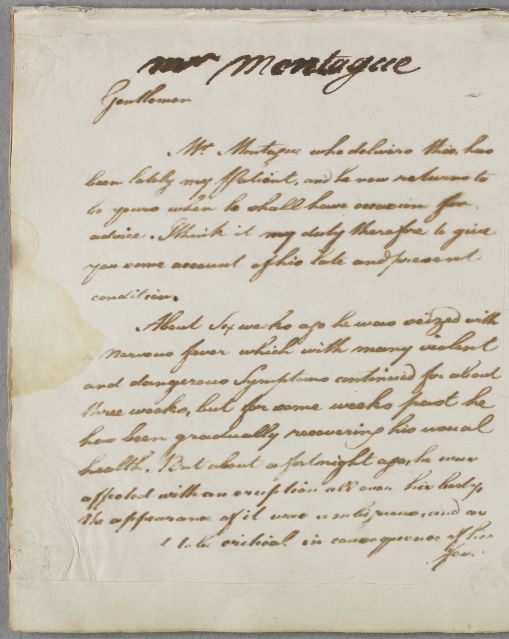 Mr Montague
Gentlemen
Mr. Montague who delivers this, has
been lately my Patient, and he now returns to
be yours when he shall have occasion for
advice. I think it my duty therefore to give
you some account of his late and present
condition.
About Six weeks ago he was seized with
nervous fever which with many violent
and dangerous Symptoms continued for about
three weeks, but for some weeks past he
has been gradually recovering his usual
health. But about a fortnight ago, he was
affected with an eruption all over his body
the appearance of it was ambiguous, and as
to be critical in consequence of his
fever